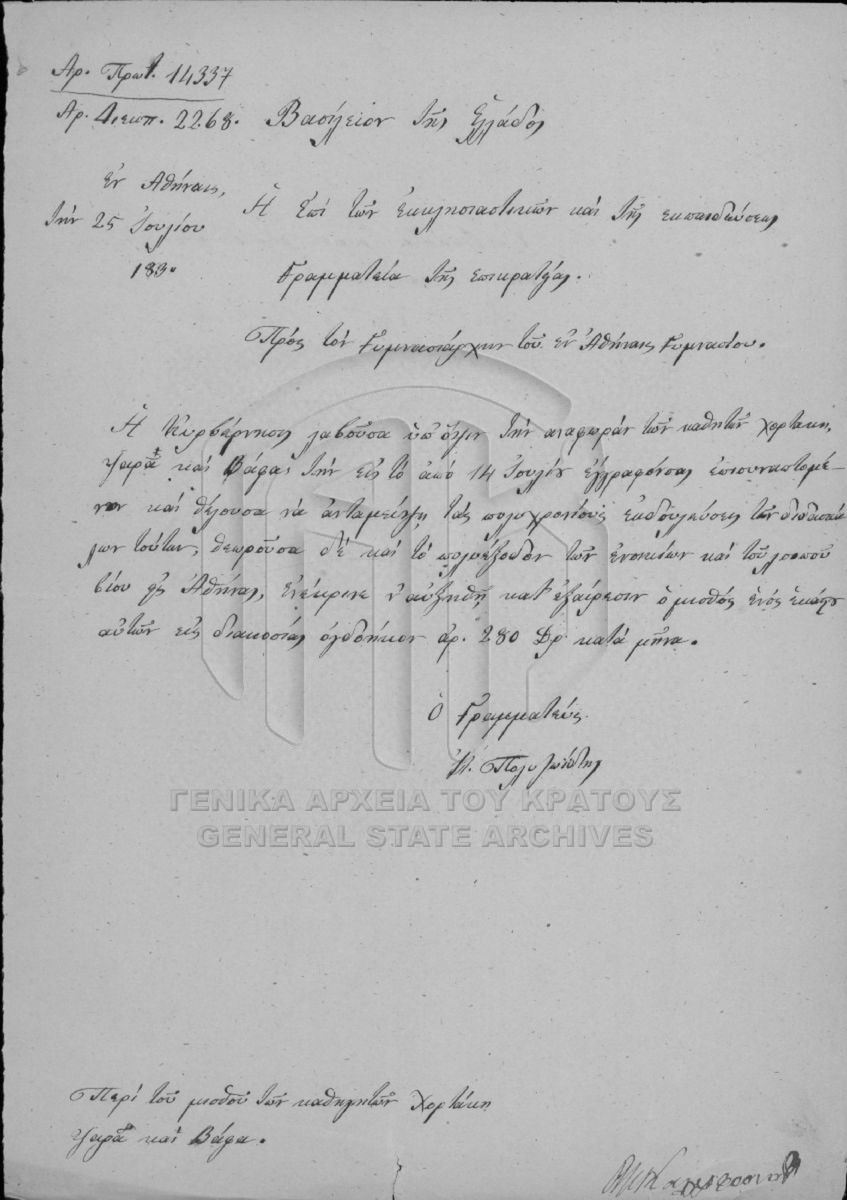 Αρ. Πρωτ. 14337
Αρ. Διεκπ. 2268. Βασίλειον τῆς Ἑλλάδος
Ἐν Ἀθήναις,
τὴν 25 Ἰουλίου
183
Ἡ Ἐπὶ τῶν ἐκκλησιαστικῶν καὶ τῆς ἐκπαιδεύσεως
Γραμματεία τῆς ἐπικρατείας.
Πρὸς τὸν Γυμνασιάρχην τοῦ ἐν Ἀθήναις Γυμνασίου.
Ἡ Κυβέρνησις λαβοῦσα ὑπ' ὄψιν τὴν ἀναφορὰν τῶν καθητῶν Χορτάκη,
Ψαρᾶ καὶ Βάφα, τὴν εἰς τὸ ἀπὸ 14 Ἰουλίου ἔγγραφόν σας ἐπισυναπτομέ-
νην καὶ θέλουσα νὰ ἀνταμείψῃ τὰς πολυχρονίους ἐκδουλεύσεις τῶν διδασκά
λων τούτων, θεωροῦσα δὲ καὶ τὸ πολυέξοδον τῶν ἐνοικίων καὶ τοῦ λοιποῦ
βίου εἰς Ἀθήνας, ἐνέκρινε ν' αὐξηθῇ κατ' ἐξαίρεσιν ὁ μισθὸς ἑνὸς ἑκάστου
αὐτῶν εἰς διακοσίας ὀγδοήκοντα ἀρ. 280 Δρ. κατὰ μῆνα.
Ὁ Γραμματεὺς
Κ. Πολυζωΐδης
ΓΕΝΙΚΑ ΑΡΧΕΙΑ ΤΟΥ ΚΡΑΤΟΥΣ
GENERAL STATE ARCHIVES
Περὶ τοῦ μισθοῦ τῶν καθηγητῶν Χορτάκη
Ψαρᾶ καὶ Βάφα.